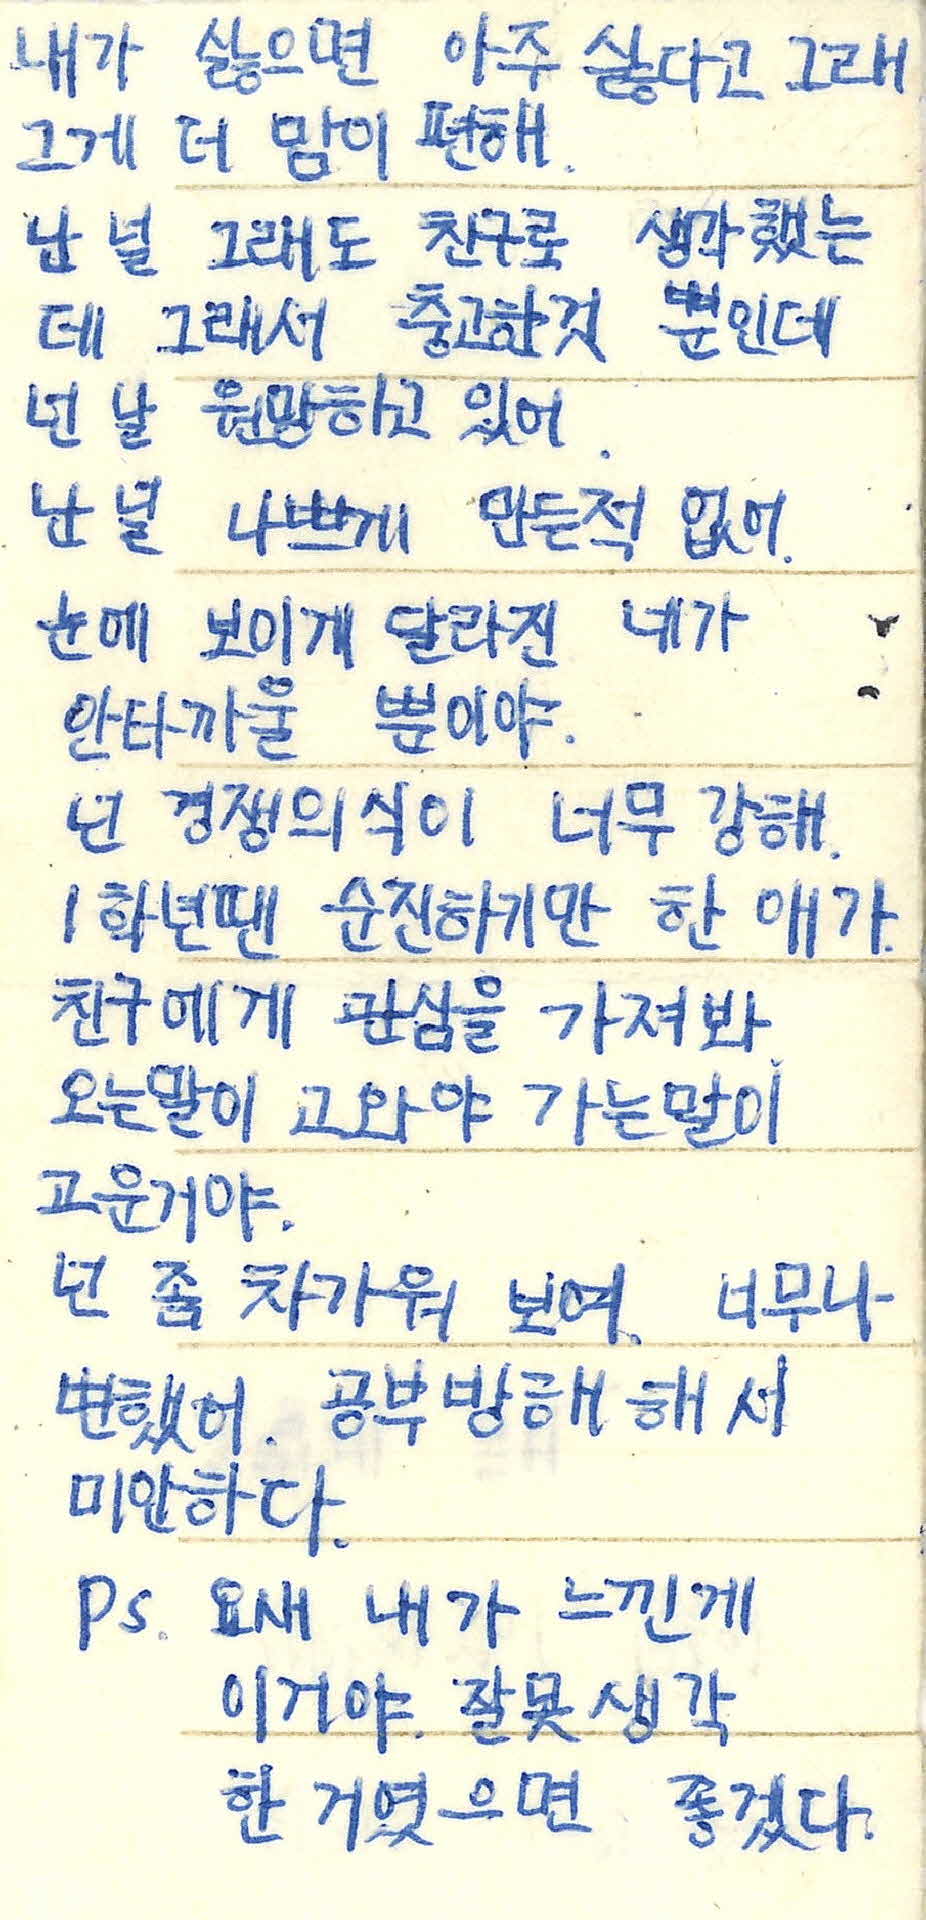 내가 싫으면 아주 싫다고 그래
그게 더 맘이 편해.
난 널 그래도 친구로 생각했는
데 그래서 충고한것 뿐인데
넌 날 원망하고 있어.
난 널 나쁘게 만든적 없어.
눈에 보이게 달라진 네가
안타까울 뿐이야.
넌 경쟁의식이 너무 강해.
1학년땐 순진하기만 한 애가.
친구에게 관심을 가져봐.
오는말이 고와야 가는말이
고운거야.
넌 좀 차가워 보여. 너무나
변했어. 공부방해 해서
미안하다.
Ps. 요새 내가 느낀게
이거야. 잘못 생각
한 거였으면 좋겠다.